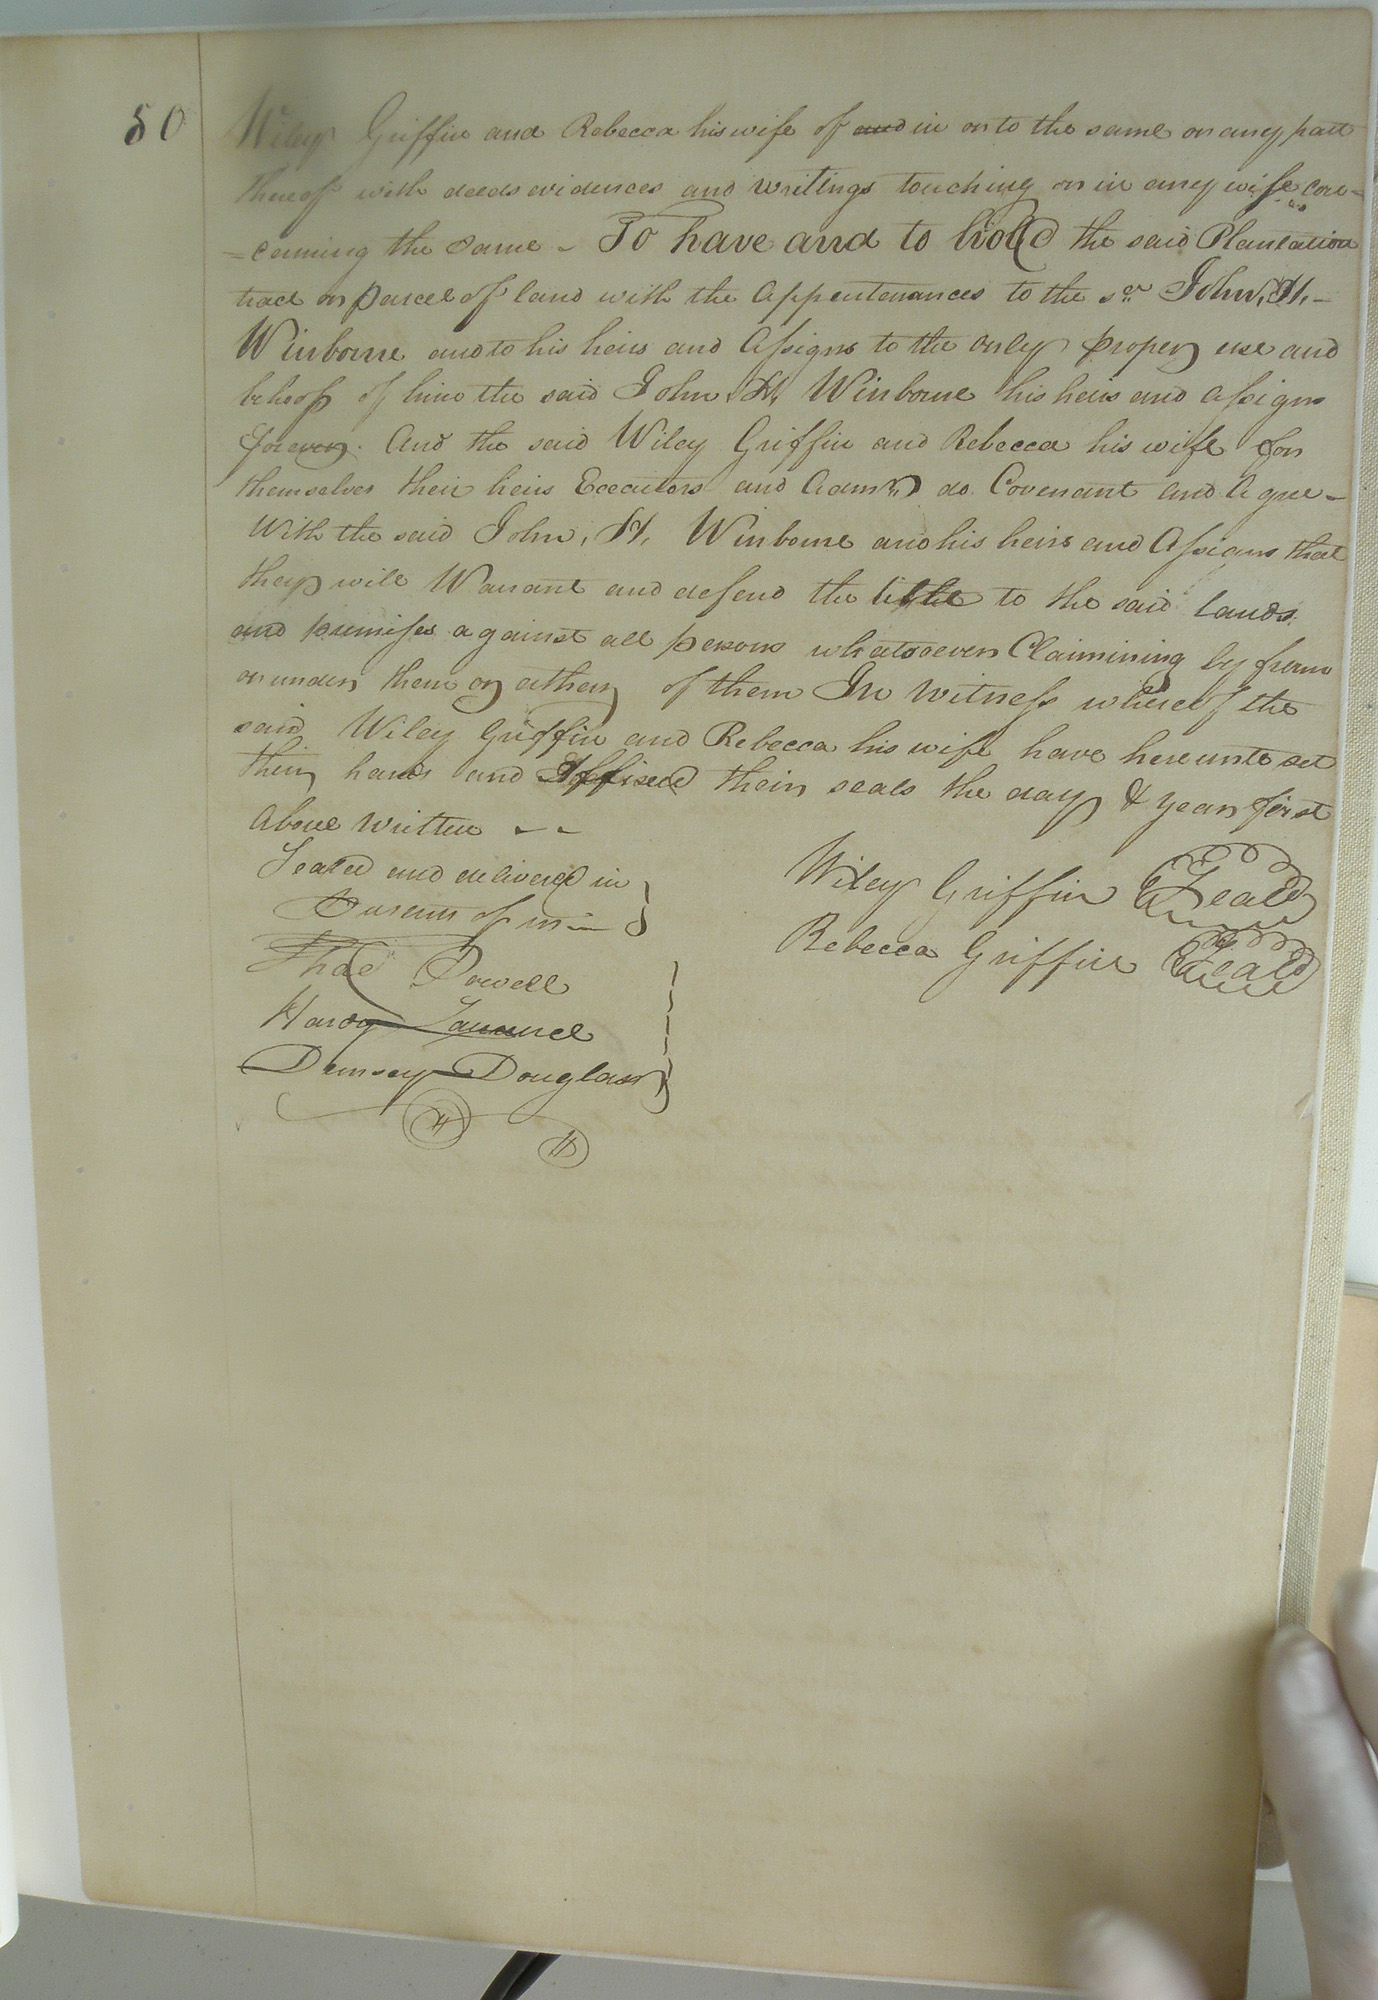 80
Wiley Griffin and Rebecca his wife of and in or to the same or any part
thereof with deeds evidences and writings touching or in any wise con=
=cerning the same - To have and to hold the said Plantation
tract or parcel of land with the appertenances to the sd John, H, -
Winborne and to his heirs and Assigns to the only proper use and
behoof of him the said John, H, Winborne his heirs and assigns
forever. And the said Wiley Griffin and Rebecca his wife for
themselves their heirs Executors and Admrs do Covenant and Agree -
With the said John, H, Winborne and his heirs and Assigns that
they will Warrant and defend the title to the said lands
and premises against all persons whatsoever Claimining by from
or under them or either of them In witness whereof the
said Wiley Griffin and Rebecca his wife have hereunto set
their hands and Affixed their seals the day & year first
Above Written - -
Sealed and delivered in
Presents of us
Wiley Griffin Seal
Rebecca Griffin Seal
Powell
Hardy
Demsey Douglass